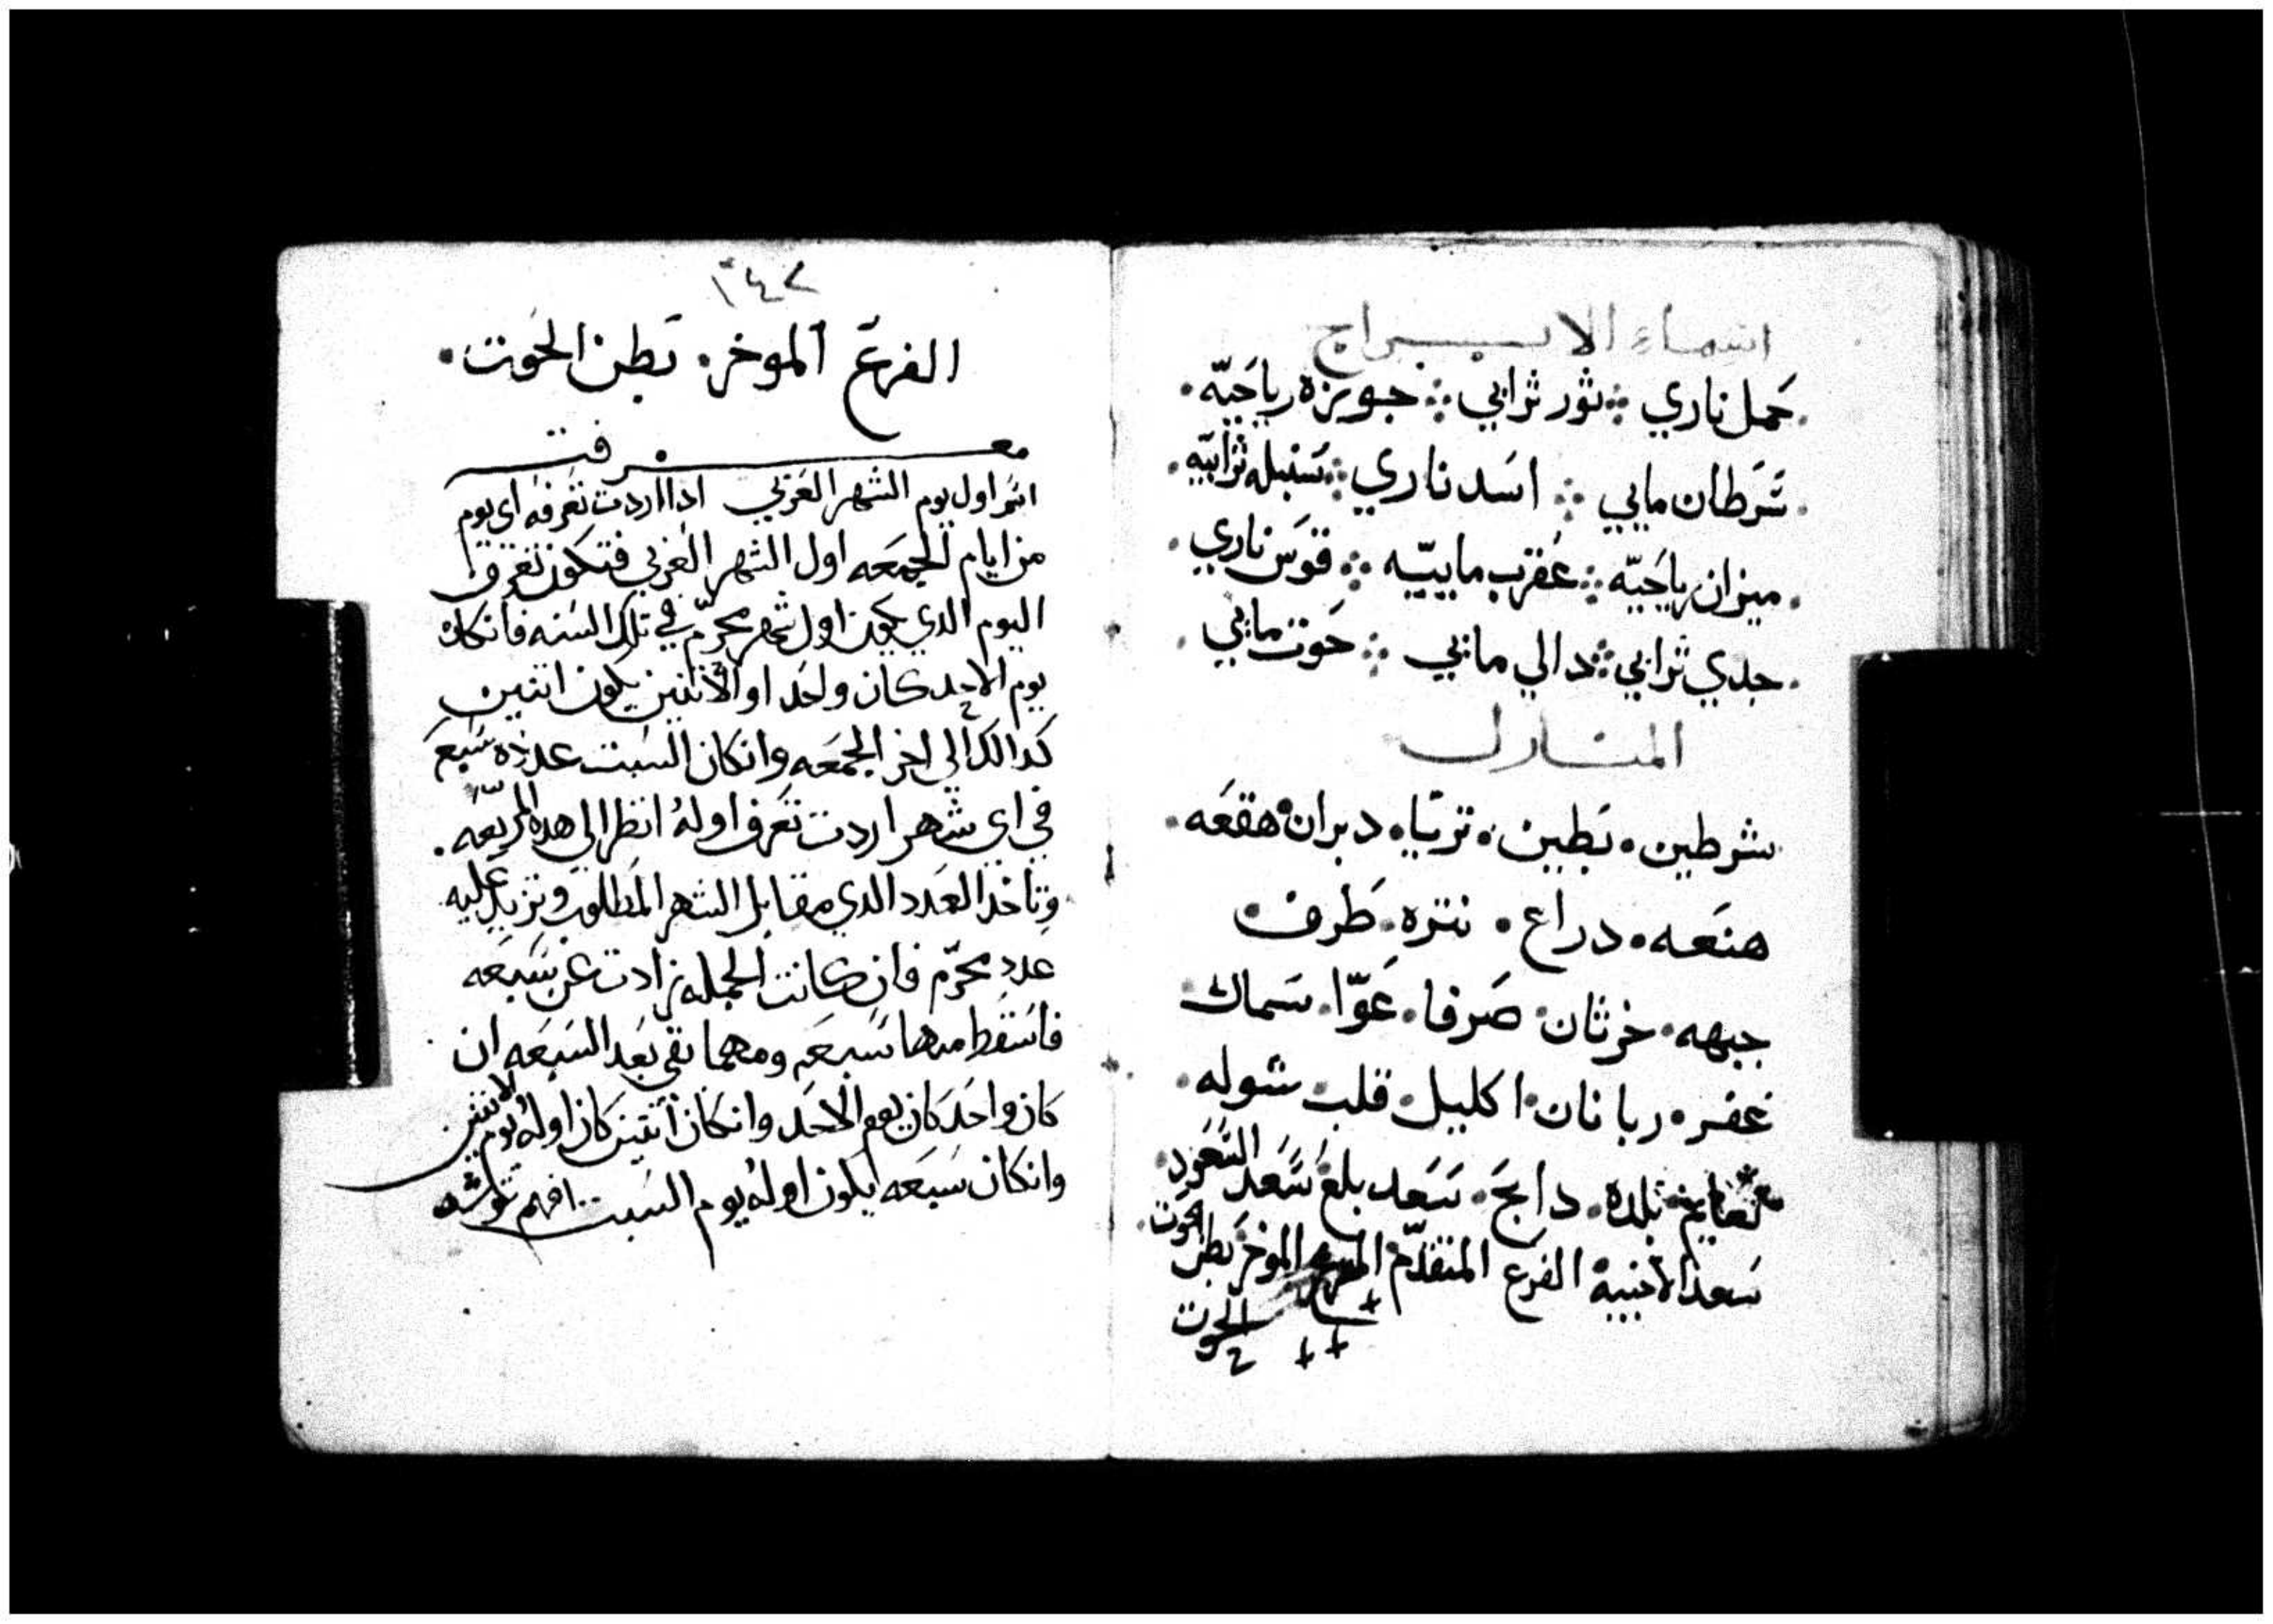 اسماء الابراج
حمل ناري ثور ترابي جوزه رياحيه
سرطان مايي اسد ناري سنبله ترابيه
ميزان رياحيه عقرب ماييه قوس ناري
جدي ترابي دالي مايي حوت مايي
المنازل
شرطين بطين تريا دبران هقعه
هنعه دراع نتره طرف
جبهه خرتان صرفا عوّا سماك
غفر ربانان اكليل قلب شوله
نعايم بلده دابح سعد بلع سعد السعود
سعد الاخبية الفرع المتقدّم الموخر بطن الحوت
الحوت
١٤٢
الفرع الموخر بطن الحوت
معرفت
اسم اول يوم الشهر العربي ادا اردت تعرفه اي يوم
من ايام الجمعه اول الشهر العربي فتكون تعرف
اليوم الدي يكون اول شهر محرّم في تلك السنه فانكان
يوم الاحد كان واحد او الاتنين يكون اتنين
كدالك الي اخر الجمعه وانكان السبت عدده سبع
في اي شهر اردت تعرف اوله انظر الي هده المربّعه
وتاخد العدد الدي مقابل الشهر المطلوب وتزيد عليه
عدد محرّم فان كانت الجمله زادت عن سبعه
فاسقط منها سبعه ومهما بقي بعد السبعه ان
كان واحد كان يوم الاحد وانكان اتنين كان اوله يوم الاتنين
وانكان سبعه يكون اوله يوم السبت افهم ترشد